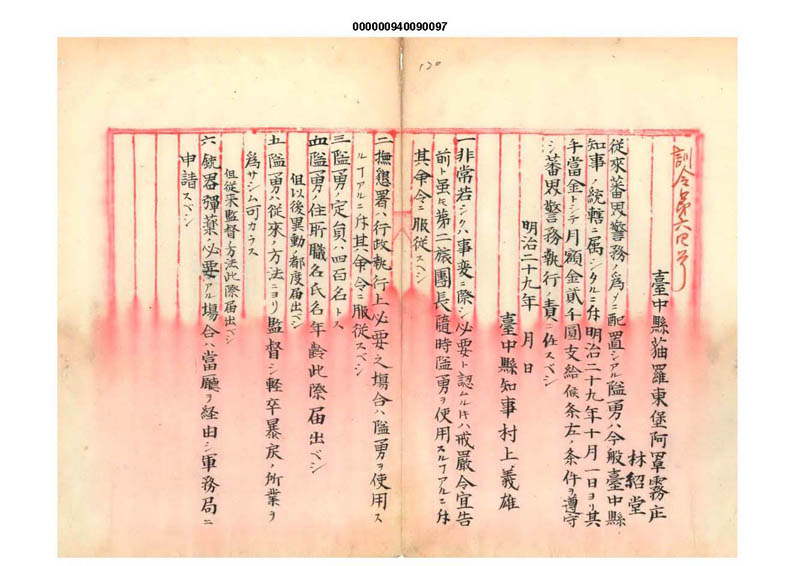 000000940090097
120
訓令第六四号
臺中縣藍羅東堡阿罩霧庄
林紹堂
従來蕃界警務ノ為メニ配置シアル隘勇ハ今般臺中縣
知事ノ統轄ニ属シタルニ付明治二十九年十月一日ヨリ其
手當金トシテ月額金貳千圓支給候条左ノ条件ヲ遵守
シ蕃界警務執行ノ責ニ任スベシ
明治二十九年 月 日
臺中縣知事村上義雄
一非常若シクハ事変ニ際シ必要ト認ムルトキハ戒嚴令宣告
前ト雖トモ第二旅團長隨時隘勇ヲ使用スルヿアルニ付
其命令ニ服従スベシ
二撫墾署ハ行政執行上必要之場合ハ隘勇ヲ使用ス
ルヿアルニ付其命令ニ服従スベシ
三隘勇ノ定員ハ四百名トス
四隘勇ノ住所職名氏名年齢此際届出ベシ
但以後異動ノ都度届出ベシ
五隘勇ハ従來ノ方法ニヨリ監督シ軽卒暴戻ノ所業ヲ
為サシム可カラス
但従来監督ノ方法此際届出ベシ
六銃器彈薬ノ必要アル場合ハ當廳ヲ経由シ軍務局ニ
申請スベシ